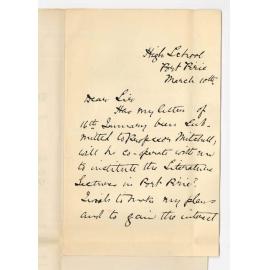 High School
Port Pirie
March 10th
Dear Sir
Has my letter of
16th January been sub-
mitted to Professor Mitchell,
will he co-operate with me
to institute the Literature
Lectures in Port Pirie?
I wish to work my plans
and to gain the interest